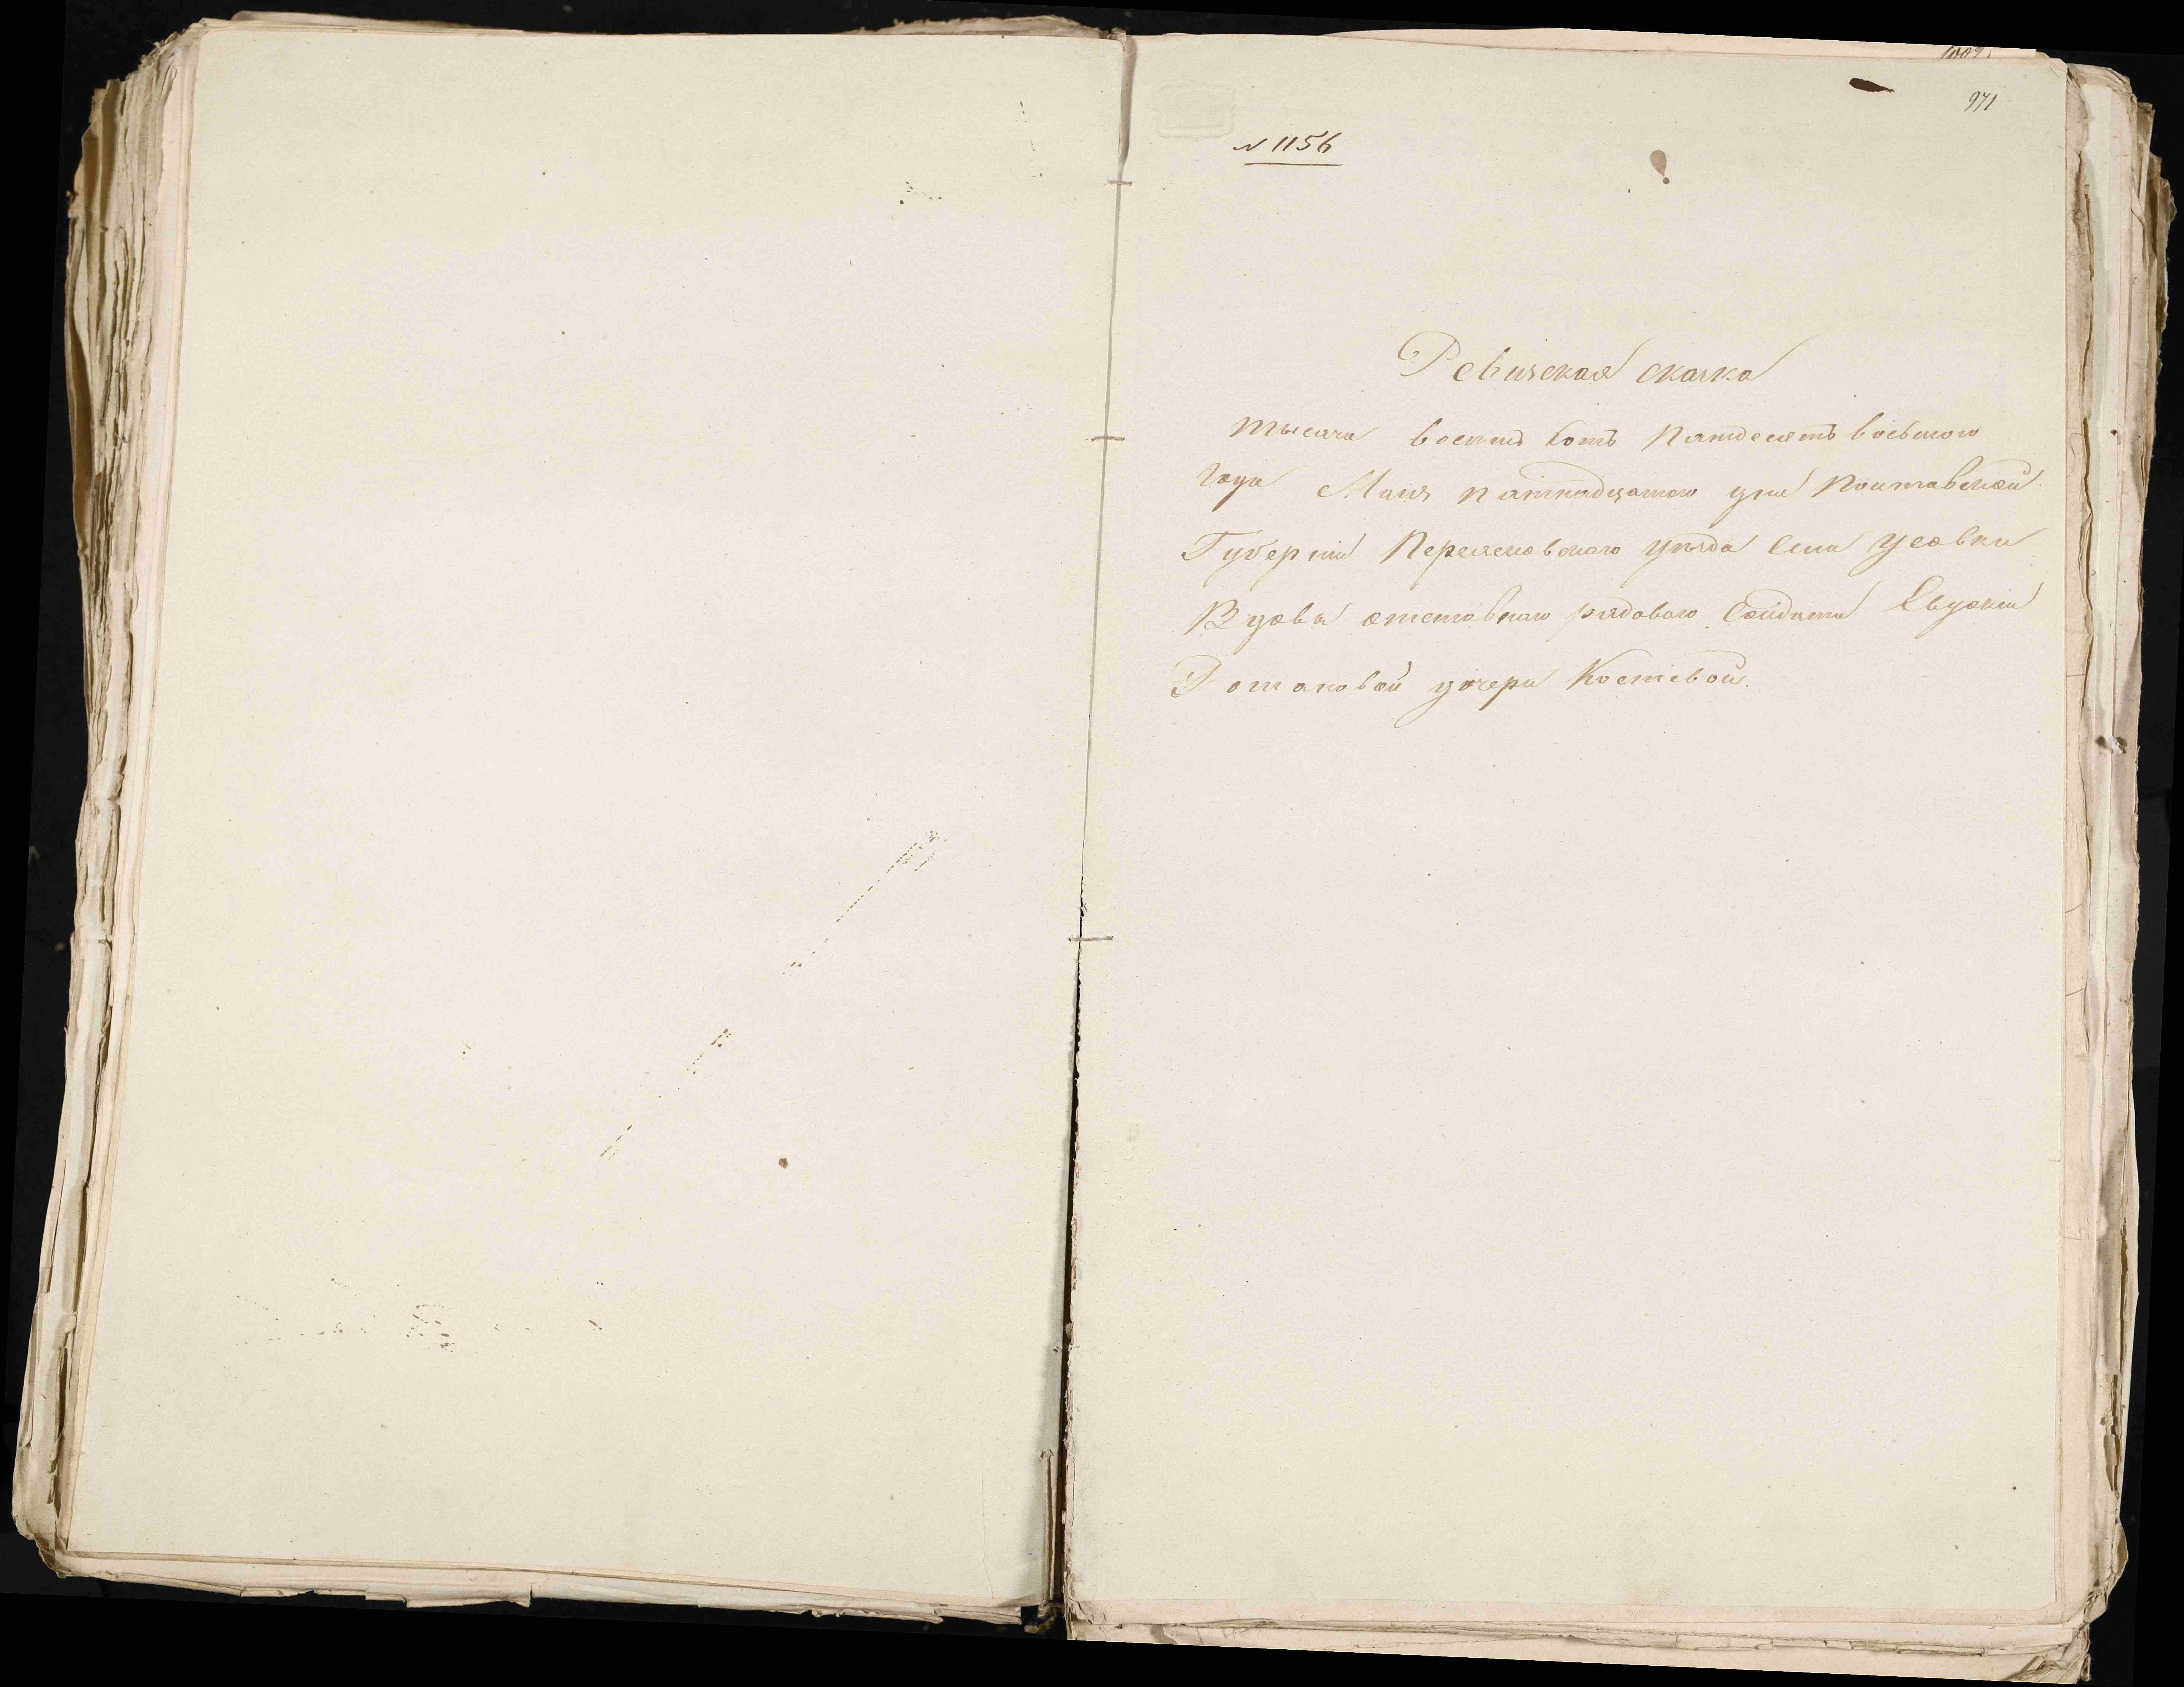 971
№ 1156
Ревизская сказка
тысяча восемь сотъ пятдесятъ восьмого
года Мая пятнадцатого дня Полтавской
Губерніи Переясловского уезда села Усовки
Вдовы отставного рядового солдата Евдокіи
дочери Костевой.